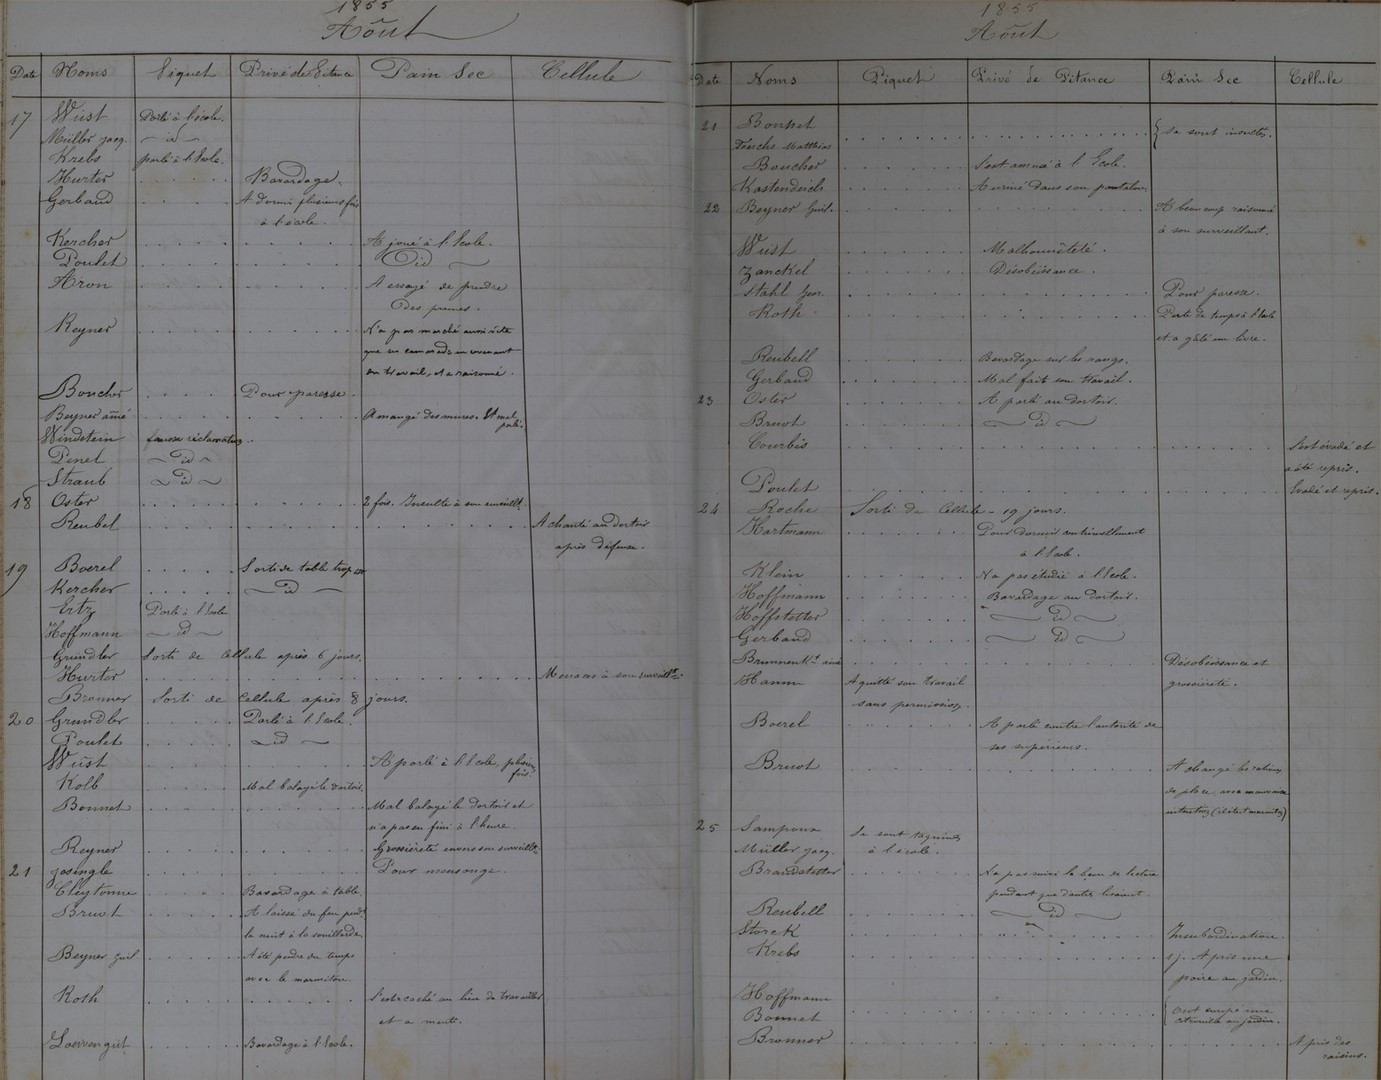 1855
Août
Date Noms Piquet Privé de Pitance Pain Sec Cellule
17 Wüst Parlé à l'école.
Müller Jacq. id
Krebs parlé à l'Ecole.
Hurter Bavardage.
Gerbaud A dormi plusieurs fois
à l'école.
Kercher A joué à l'Ecole.
Poulet id
Aron A essayé de prendre
des prunes.
Reyner N'a pas marché aussi vite
que ses camarades en revenant
du travail, et a raisonné.
Boucher Pour paresse.
Beyner aîné A mangé des mures. Et mal
parlé.
Windstein fausse réclamation.
Penet id
Straub id
18 Oster 2 fois. Insulte à son surveillt.
Reubel A chanté au dortoir
après défense.
19 Boerel Sorti de table trop
Kercher id
Ertz Parlé à l'Ecole
Hoffmann id
Gründler Sorti de Cellule après 6 jours.
Hurter Menaces à son surveillt.
Bronner Sorti de Cellule après 8 jours.
20 Grundler Parlé à l'Ecole.
Poulet id
Wüst A parlé à l'Ecole plusieurs
fois.
Kolb Mal balayé le dortoir.
Bonnet Mal balayé le dortoir et
n'a pas eu fini à l'heure.
Reyner Grossièreté envers son surveillt.
21 Josingle Pour mensonge.
Cleytonne Bavardage à table
Bruot A laissé du feu pendt
la nuit à la souillarde.
Beyner Guil A été perdre du temps
avec le marmiton.
Roth S'est caché au lieu de travailler
et a menti.
Loewengut Bavardage à l'Ecole.
1855
Août
Date Noms Piquet Privé de Pitance Pain Sec Cellule
21 Bonnet Se sont insultés.
Fuchs Matthias
Boucher S'est amusé à l'Ecole.
Kastendeich A uriné dans son pantalon.
22 Beyner Guil. A beaucoup raisonné
à son surveillant.
Wüst Malhonnêteté.
Zanckel Désobéissance.
Stahl Geor. Pour paresse.
Roth Perte de temps à l'Ecole
et a gâté un livre.
Reubell Bavardage sur les rangs.
Gerbaud Mal fait son travail.
23 Oster A parlé au dortoir.
Bruot id
Courbis S'est évadé et
a été repris.
Poulet Evadé et repris.
24 Roche Sorti de Cellule - 19 jours.
Hartmann Pour dormir continuellement
à l'Ecole.
Klein N'a pas étudié à l'Ecole.
Hoffmann Bavardage au dortoir.
Hoffstetter id
Gerbaud id
Brunnenkt ainé Désobéissance et
Hamm A quitté son travail grossièreté.
sans permission.
Boerel A parlé contre l'autorité de
ses supérieurs.
Bruot A changé les rations
de place, avec mauvaise
intention (c'était menutz)
25 Sampoux Se sont taquinés
Müller Jacq. à l'école.
Brandstetter N'a pas suivi la leçon de lecture
pendant que d'autres lisaient.
Reubell id
Storck Insubordination.
Krebs 1 j. A pris une
poire au jardin.
Hoffmann
Bonnet ont coupé une
citrouille au jardin.
Bronner A pris des
raisins.